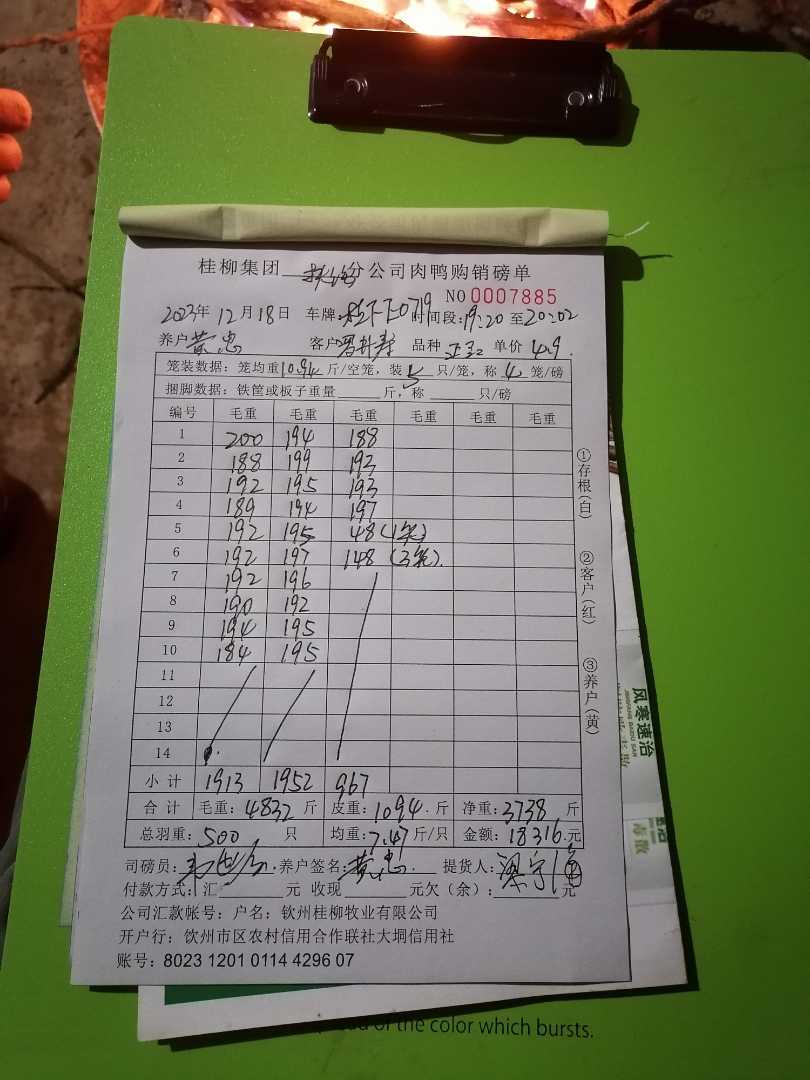 桂柳集团 公司肉鸭购销磅单
NO 0007885
2023年 12月 18日 车牌: 0719 时间段:19:20 至20:02
养户 黄忠 客户 品种 单价 4.9
笼装数据: 笼均重10.94斤/空笼, 装5只/笼, 称4笼/磅
捆脚数据: 铁筐或板子重量 斤, 称 只/磅
编号 毛重 毛重 毛重 毛重 毛重 毛重
1 200 194 188
2 188 199 193
3 192 195 193
4 189 194 197
5 192 195 48(1笼)
6 192 197 148(3笼)
7 192 196
8 190 192
9 194 195
10 184 195
11
12
13
14
小计 1913 1952 967
合计 毛重: 4832 斤 皮重: 1094 斤 净重: 3738 斤
总羽重: 500 只 均重: 7.47斤/只 金额: 18316元
司磅员: 养户签名: 黄忠 提货人:
付款方式: 汇 元 收现 元欠(余): 元
公司汇款帐号: 户名: 钦州桂柳牧业有限公司
开户行: 钦州市区农村信用合作联社大垌信用社
账号: 8023 1201 0114 4296 07
①存根(白)
②客户(红)
③养户(黄)
风寒速治
of the color which bursts.